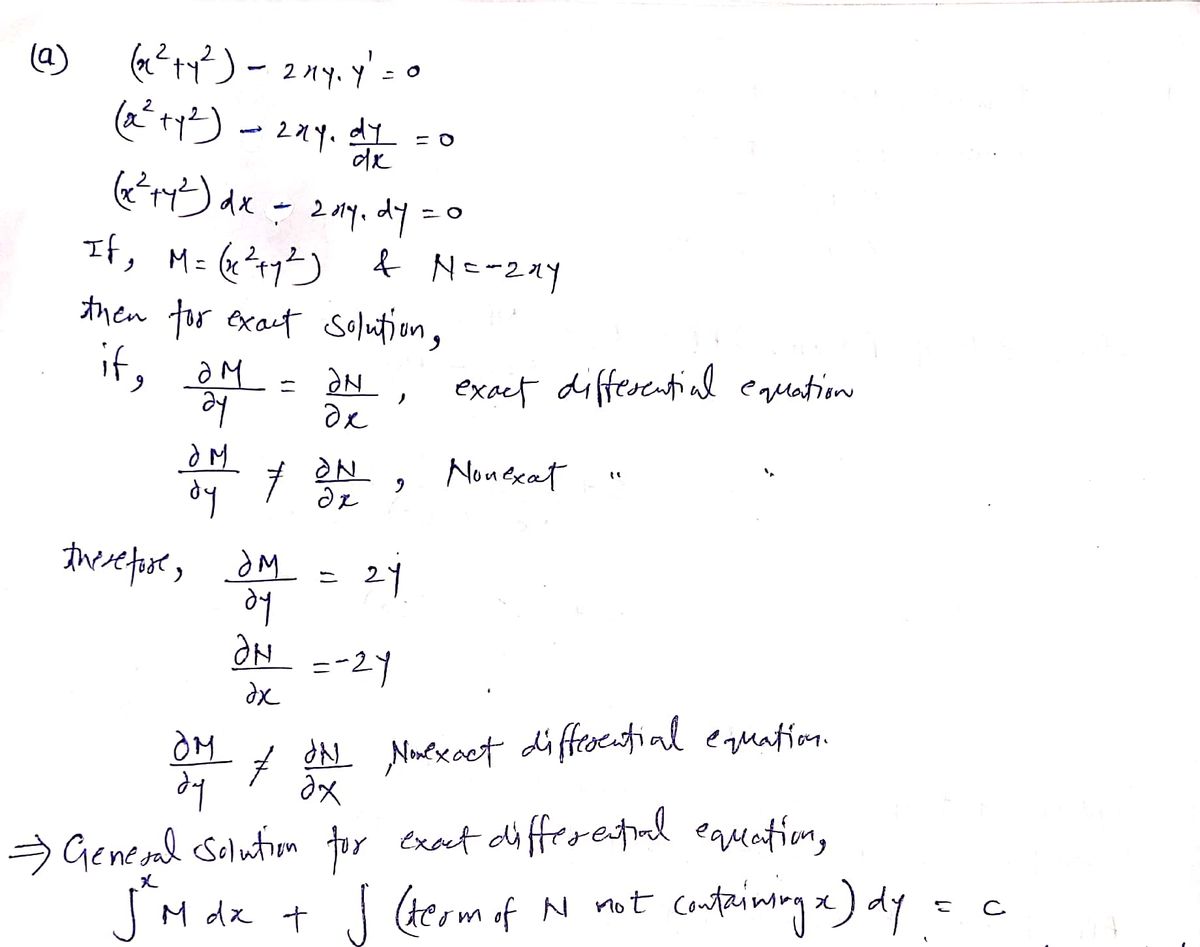 (a) (x²+y²) - 2xy. y' = 0
(x²+y²) - 2xy. dy/dx = 0
(x²+y²) dx - 2xy. dy = 0
If, M = (x²+y²) & N = -2xy
then for exact solution,
if, ∂M/∂y = ∂N/∂x , exact differential equation
∂M/∂y ≠ ∂N/∂x , Nonexat "
therefore, ∂M/∂y = 2y
∂N/∂x = -2y
∂M/∂y ≠ ∂N/∂x , Nonexact differential equation.
⇒ General solution for exact differential equation,
∫ˣ M dx + ∫ (term of N not containing x) dy = c